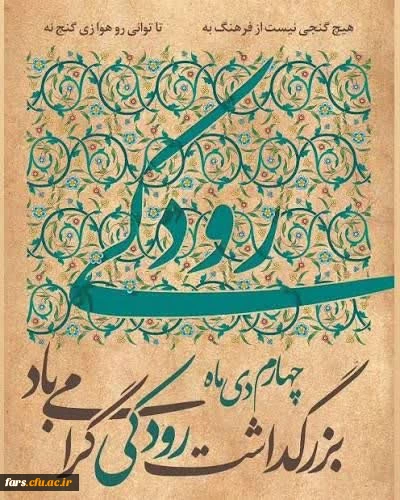 هیچ گنجی نیست از فرهنگ به    تا توانی رو هوا زی گنج نه
رودکی
چهارم دی ماه
بزرگداشت رودکی گرامی باد
fars.cfu.ac.ir